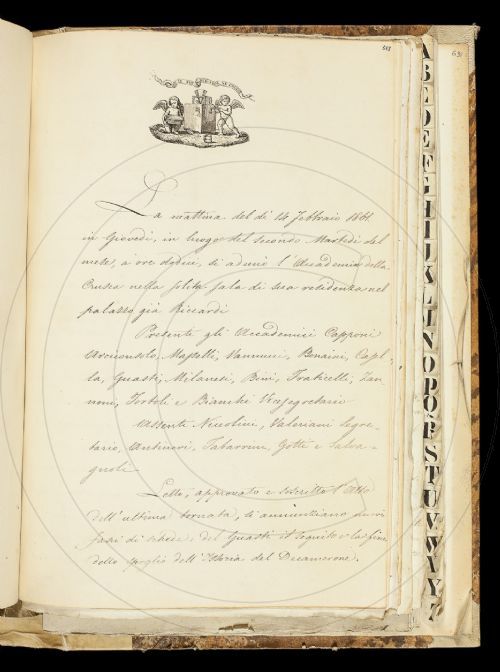 La mattina del dì 14 Febbraio 1861
in Giovedì, in luogo del secondo Martedì del
mese, a ore dodici, si adunò l'Accademia della
Crusca nella solita sala di sua residenza nel
palazzo già Riccardi
Presenti gli Accademici Capponi
Arciconsolo, Maffei, Vannucci, Bonaini, Capel-
la, Guasti, Milanesi, Bini, Fraticelli, Zan-
noni, Tortoli e Bianchi Vicesegretario
Assenti Niccolini, Valeriani Segre-
tario, Antinori, Tabarrini, Gotti e Salva-
gnoli
Letto, approvato e scritto l'Atto
dell'ultima tornata, si annunziano
fasci di schede, del Guasti il seguito e la fine
dello spoglio dell'Istoria del Decamerone.
A
B
C
D
E
F
G
H
I
J
K
L
M
N
O
P
Q
R
S
T
U
V
W
X
Y
Z